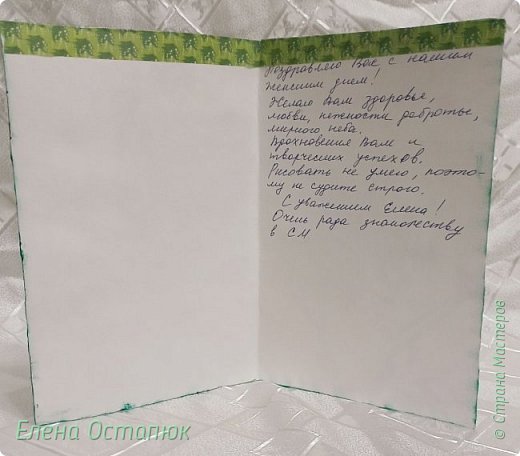 Поздравляю Вас с нашим
женским днем!
Желаю Вам здоровье,
любви, нежности доброты,
мирного неба.
Вдохновения Вам и
творческих успехов.
Рисовать не умею, поэто-
му не судите строго.
С уважением Елена!
Очень рада знакомству
в СМ
Елена Остапюк
© Страна Мастеров